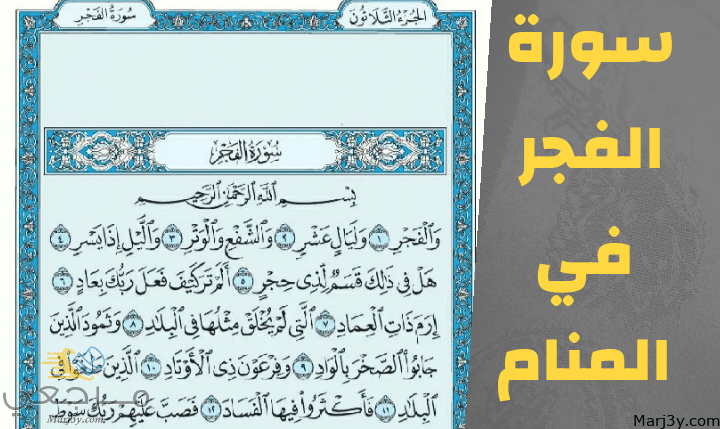 الجزء الثلاثون
سورة الفجر
سورة الفجر
بسم الله الرحمن الرحيم
وَالْفَجْرِ ١ وَلَيَالٍ عَشْرٍ ٢ وَالشَّفْعِ وَالْوَتْرِ ٣ وَالَّيْلِ إِذَا يَسْرِ ٤
هَلْ فِى ذَٰلِكَ قَسَمٌ لِّذِى حِجْرٍ ٥ أَلَمْ تَرَ كَيْفَ فَعَلَ رَبُّكَ بِعَادٍ ٦
إِرَمَ ذَاتِ الْعِمَادِ ٧ الَّتِى لَمْ يُخْلَقْ مِثْلُهَا فِى الْبِلَٰدِ ٨ وَثَمُودَ الَّذِينَ
جَابُوا الصَّخْرَ بِالْوَادِ ٩ وَفِرْعَوْنَ ذِى الْأَوْتَادِ ١٠ الَّذِينَ طَغَوْا فِى
الْبِلَٰدِ ١١ فَأَكْثَرُوا فِيهَا الْفَسَادَ ١٢ فَصَبَّ عَلَيْهِمْ رَبُّكَ سَوْطَ
سورة
الفجر
في
المنام
مرجعي
Marj3y.com
Marj3y.com